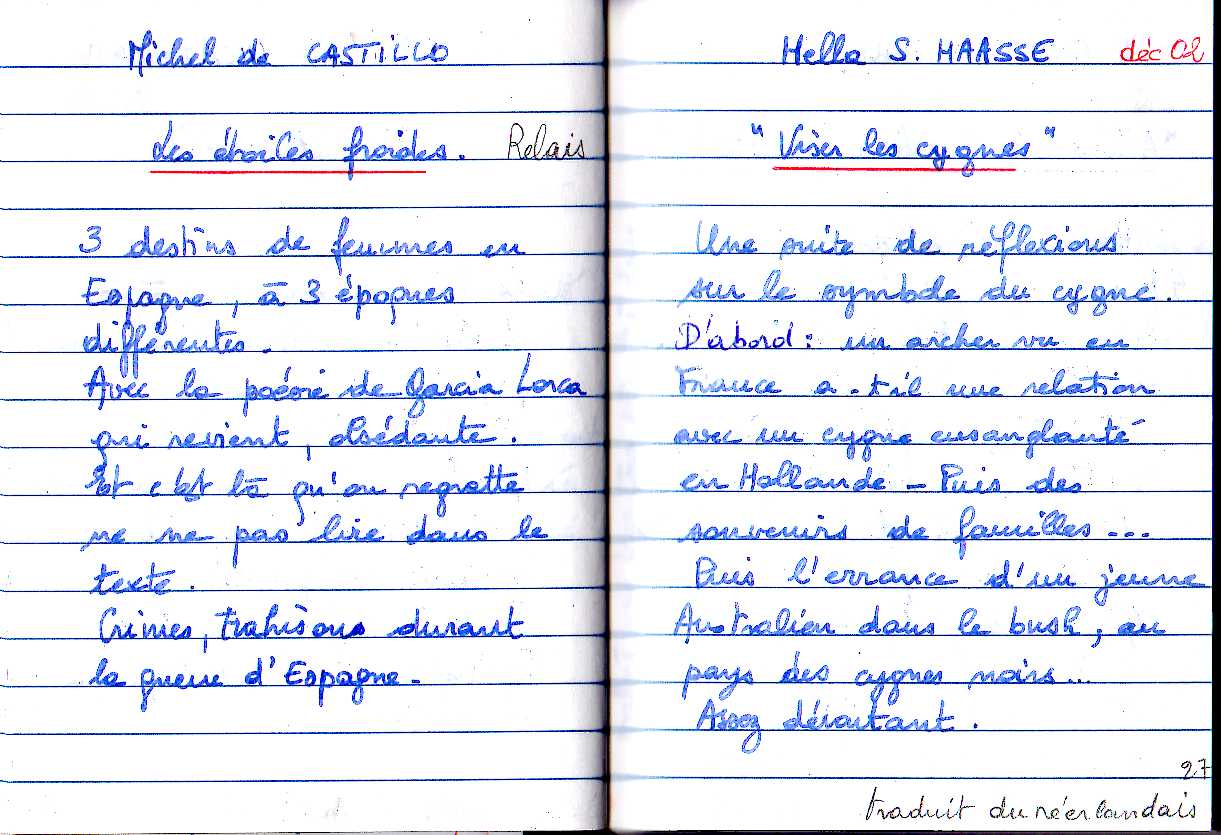 Michel de CASTILLO
Les étoiles froides. Relais
3 destins de femmes en
Espagne, à 3 époques
différentes.
Avec la poésie de Garcia Lorca
qui revient, obsédante.
Et c'est là qu'on regrette
ne ne pas lire dans le
texte.
Crimes, trahisons durant
la guerre d'Espagne.
Hella S. HAASSE déc 02
"Viser les cygnes"
Une suite de réflexions
sur le symbole du cygne.
D'abord : un archer vu en
France a-t-il une relation
avec un cygne ensanglanté
en Hollande - Puis des
souvenirs de familles...
Puis l'errance d'un jeune
Australien dans le bush, au
pays des cygnes noirs...
Assez déroutant.
27
traduit du néerlandais